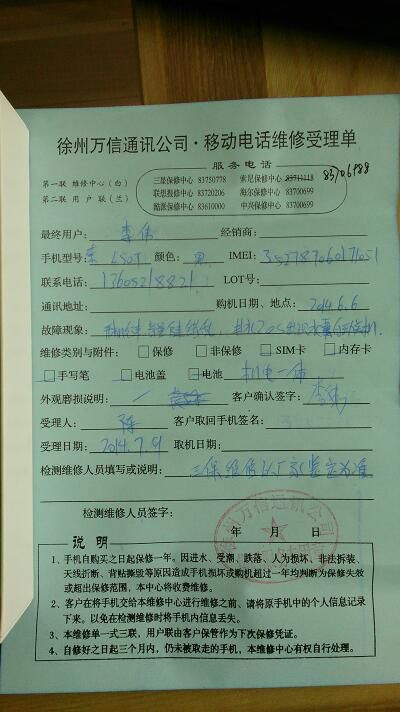 徐州万信通讯公司·移动电话维修受理单
服务电话
第一联 维修中心(白)
第二联 用户联(兰)
三星保修中心 83750778 索尼保修中心 83711118 83706988
联想报修中心 83720206 海尔保修中心 83700699
酷派保修中心 83610000 中兴保修中心 83700699
最终用户: 李伟 经销商:
手机型号: 索 L50T 颜色: 黑 IMEI:
联系电话: 13605218821 LOT号:
通讯地址: 购机日期、地点: 2014.6.6
故障现象:
维修类别与附件: □保修 □非保修 □SIM卡 □内存卡
□手写笔 □电池盖 □电池 机电一体
外观磨损说明: 客户确认签字: 李伟
受理人: 陈 客户取回手机签名:
受理日期: 2014.7.9 取机日期:
检测维修人员填写或说明: 三保维修以厂家鉴定为准
检测维修人员签字:
年 月 日
徐州万信通讯公司
说明
1、手机自购买之日起保修一年。因进水、受潮、跌落、人为损坏、非法拆装、
天线折断、背贴撕毁等原因造成手机损坏或购机超过一年均判断为保修失效
或超出保修范围,本中心将收费维修。
2、客户在将手机交给本维修中心进行维修之前、请将原手机中的个人信息记录
下来,以免在检测维修时将手机内信息丢失。
3、本维修单一式三联,用户联由客户保管作为下次保修凭证。
4、自修好之日起三个月内,仍未被取走的手机,本维修中心有权自行处理。